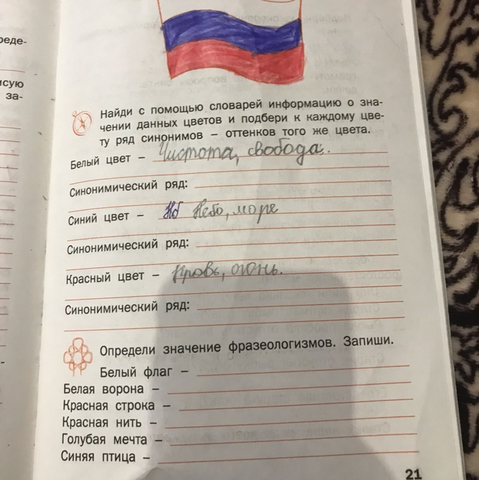 реде-
исую
за-
Найди с помощью словарей информацию о зна-
чении данных цветов и подбери к каждому цве-
ту ряд синонимов – оттенков того же цвета.
Белый цвет – Чистота, свобода.
Синонимический ряд:
Синий цвет – Нб Небо, море
Синонимический ряд:
Красный цвет – Кровь, огонь.
Синонимический ряд:
Определи значение фразеологизмов. Запиши.
Белый флаг –
Белая ворона –
Красная строка –
Красная нить –
Голубая мечта –
Синяя птица –
21